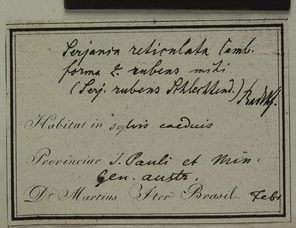 Serjania reticulata Camb.
forma 2. rubens mihi
(Serj. rubens Schlechtend.) Radlk.
Habitat in sylvis caeduis
Provinciae S. Pauli et Min.
Gen. austr.
Dr. Martius Iter Brasil. Febr.